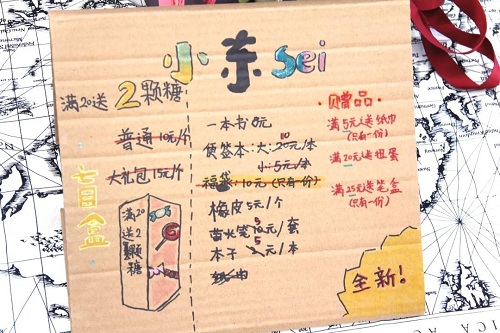 小东sei
满20送2颗糖
普通10元/个
大礼包15元/个
盲盒
满20送2颗糖
一本书8元
便签本:大:20元/本
10
小:5元/本
福袋:10元(只有一份)
橡皮5元/个
萤火笔10元/套
5
本子2元/本
5
赠品
满5元送纸巾
(只有一份)
满20元送扭蛋
满25元送笔盒
(只有一份)
全新!